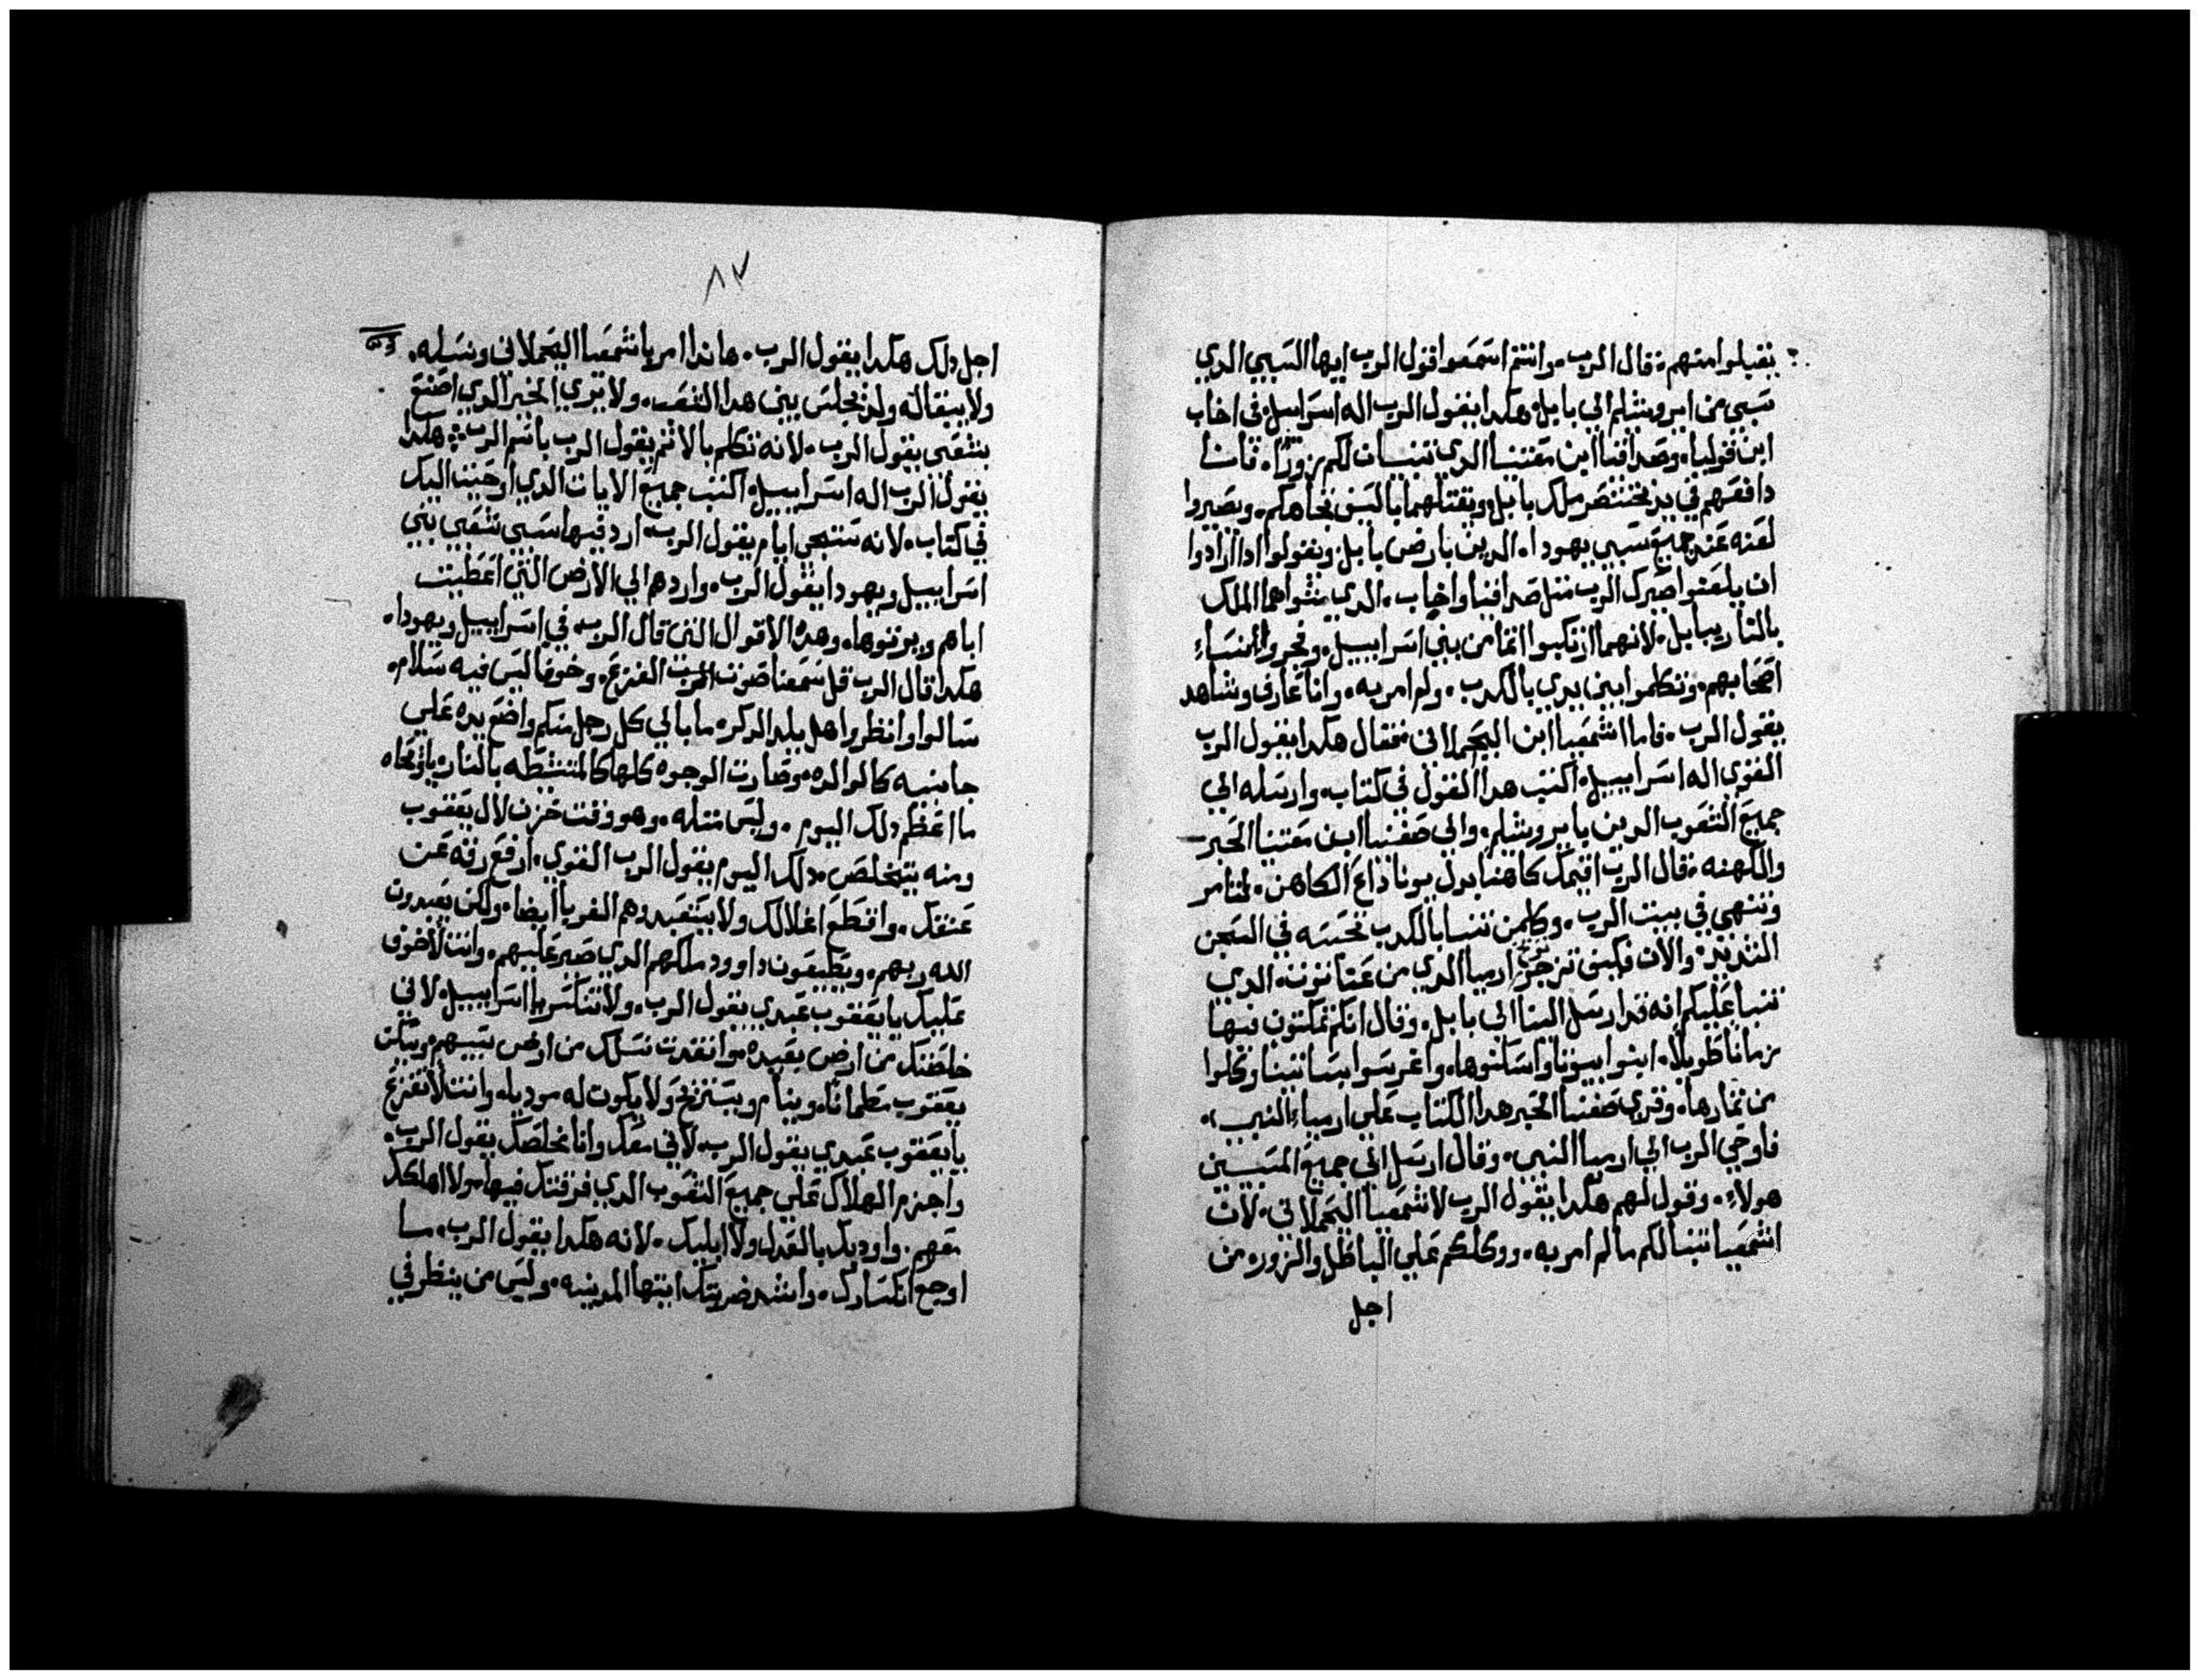 يقبلوا منهم. قال الرب. وانتم اسمعوا قول الرب ايها السبي الدي
سبي من ايروشليم الي بابل. هكدا يقول الرب اله اسراييل في اخاب
ابن قوليا. وصدافنا ابن معنسا الدي تنبيان لكم زورًا. فانا
دافعهم في يد بختنصر ملك بابل ويقتلهما بالسيف تجاهكم. ويصيروا
لعنه عند جميع سبي يهودا. الدين بارض بابل ويقولوا ادا ارادوا
ان يلعنوا صيرك الرب متل صدافنا واخاب. الدي شواهما الملك
بالنار ببابل. لانهما ارتكبوا اتما من بني اسراييل. وفجروا بنساء
اصحابهم. وتكلموا بين يدي بالكدب. ولم امر به. وانا عارف وشاهد
يقول الرب. فاما اشمعيا ابن اليحملاني فقال هكدا يقول الرب
القوي اله اسراييل. اكتب هدا القول في كتاب. وارسله الي
جميع الشعوب الدين بايروشليم. والي صفنيا ابن معنسا الحبر
والكهنه. قال الرب اقيمك كاهنا بدل يوناداع الكاهن. لتامر
وتنهي في بيت الرب. وكلمن تنبا بالكدب تحبسه في السجن
الشديد. والان فكيف تزجر ارميا الدي من عناتوت. الدي
تنبا عليكم انه قد ارسل الينا الي بابل. وقال انكم تمكتون فيها
زمانا طويلا. ابنوا بيوتا واسكنوها. واغرسوا بساتينا وكلوا
من تمارها. وقري صفنيا الحبر هدا الكتاب علي ارمياء النبي.
فاوحي الرب الي ارميا النبي. وقال ارسل الي جميع المسبيين
هولاء. وقول لهم هكدا يقول الرب لاشمعيا اليحملاني. لان
اشمعيا تنبا لكم ما لم امر به. ووكلكم علي الباطل والزور. من
اجل
٨٧
اجل دلك هكدا يقول الرب. هاندا امر باشمعيا اليحملاني ونسله.
ولا يبقا له ولد يجلس بين هدا الشعب. ولا يري الخير الدي اصنع
بشعبي يقول الرب. لانه تكلم بالاتم يقول الرب باسم الرب. هكدا
يقول الرب اله اسراييل. اكتب جميع الايات الدي اوحيت اليك
في كتاب. لانه ستجي ايام يقول الرب. ارد فيها سبي شعبي بني
اسراييل ويهودا يقول الرب. واردهم الي الارض التي اعطيت
اباهم ويرتوها. وهده الاقوال التي قال الرب. في اسراييل ويهودا.
هكدا قال الرب قل سمعنا صوت الفزع. وخوفا ليس فيه سلام.
سالوا وانظروا هل يلد الدكر. ما بالي كل رجل منكم واضع يده علي
جانبيه كالوالده. وصارت الوجوه كلها كالمتشطه بالنار. ياوتحاه
ما اعظم دلك اليوم. وليس متله. وهو وقت حزن لال يعقوب
ومنه يتخلص. دلك اليوم يقول الرب القوي. ارفع رقه عن
عنقك. واقطع اغلالك ولا يستعبدوهم الغربا ايضا. ولكن يعبدون
الله ربهم. ويطيعون داوود ملكهم الدي صير عليهم. وانت لا خوف
عليك يا يعقوب عبدي يقول الرب. ولا تنكسر يا اسراييل. لاني
خلصتك من ارض بعيده. وانقدت نسلك من ارض سبيهم. ويسكن
يعقوب مطمانا. وينام ويستريح ولا يكون له مودي. وانت لا تفزع
يا يعقوب عبدي يقول الرب. لاني معك وانا مخلصك يقول الرب.
واجزم الهلاك علي جميع الشعوب الدي فرقتك فيها. ولا اهلكك
معهم. واوديك بالعدل ولا ابليك. لانه هكدا يقول الرب. ما
اوجع انكسارك. واشد ضربتك ايتها المدينه. وليس من ينظر في